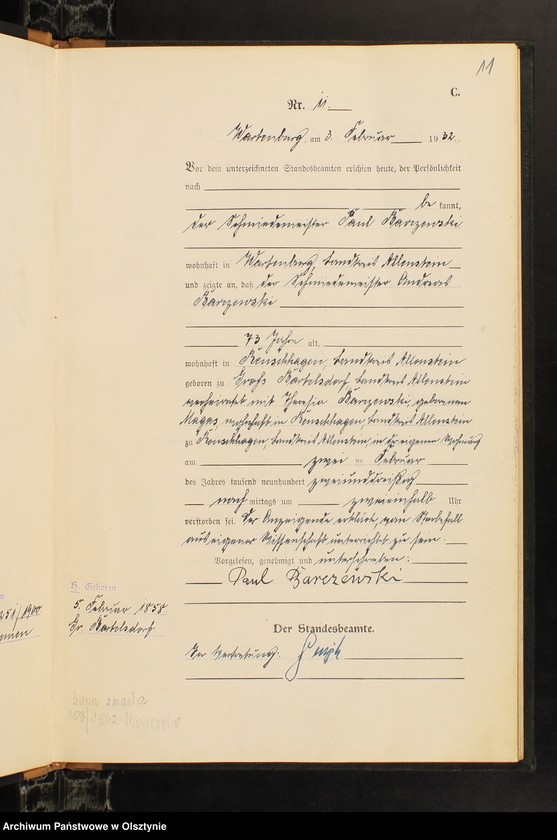 11
C.
Nr. 11.
Wartenburg, am 3. Februar 1932.
Vor dem unterzeichneten Standesbeamten erschien heute, der Persönlichkeit
nach
be kannt,
der Schmiedemeister Paul Barczewski
wohnhaft in Wartenburg, Landkreis Allenstein
und zeigte an, daß der Schmiedemeister Andreas
Barczewski
73 Jahre alt,
wohnhaft in Landkreis Allenstein
geboren zu Groß Bartelsdorf, Landkreis Allenstein
verheiratet mit Theresia Barczewski, geborenen
wohnhaft in Landkreis Allenstein
zu Landkreis Allenstein, in der eigenen Wohnung
am zwei ten Februar
des Jahres tausend neunhundert zweiunddreißig
nach mittags um zweieinhalb Uhr
verstorben sei. Der Anzeigende erklärte, vom Sterbefall
aus eigener Wissenschaft unterrichtet zu sein.
Vorgelesen, genehmigt und unterschrieben:
Paul Barczewski
Der Standesbeamte.
In Vertretung:
H. Geboren
5. Februar 1858
Gr. Bartelsdorf.
żona zmarła
Archiwum Państwowe w Olsztynie